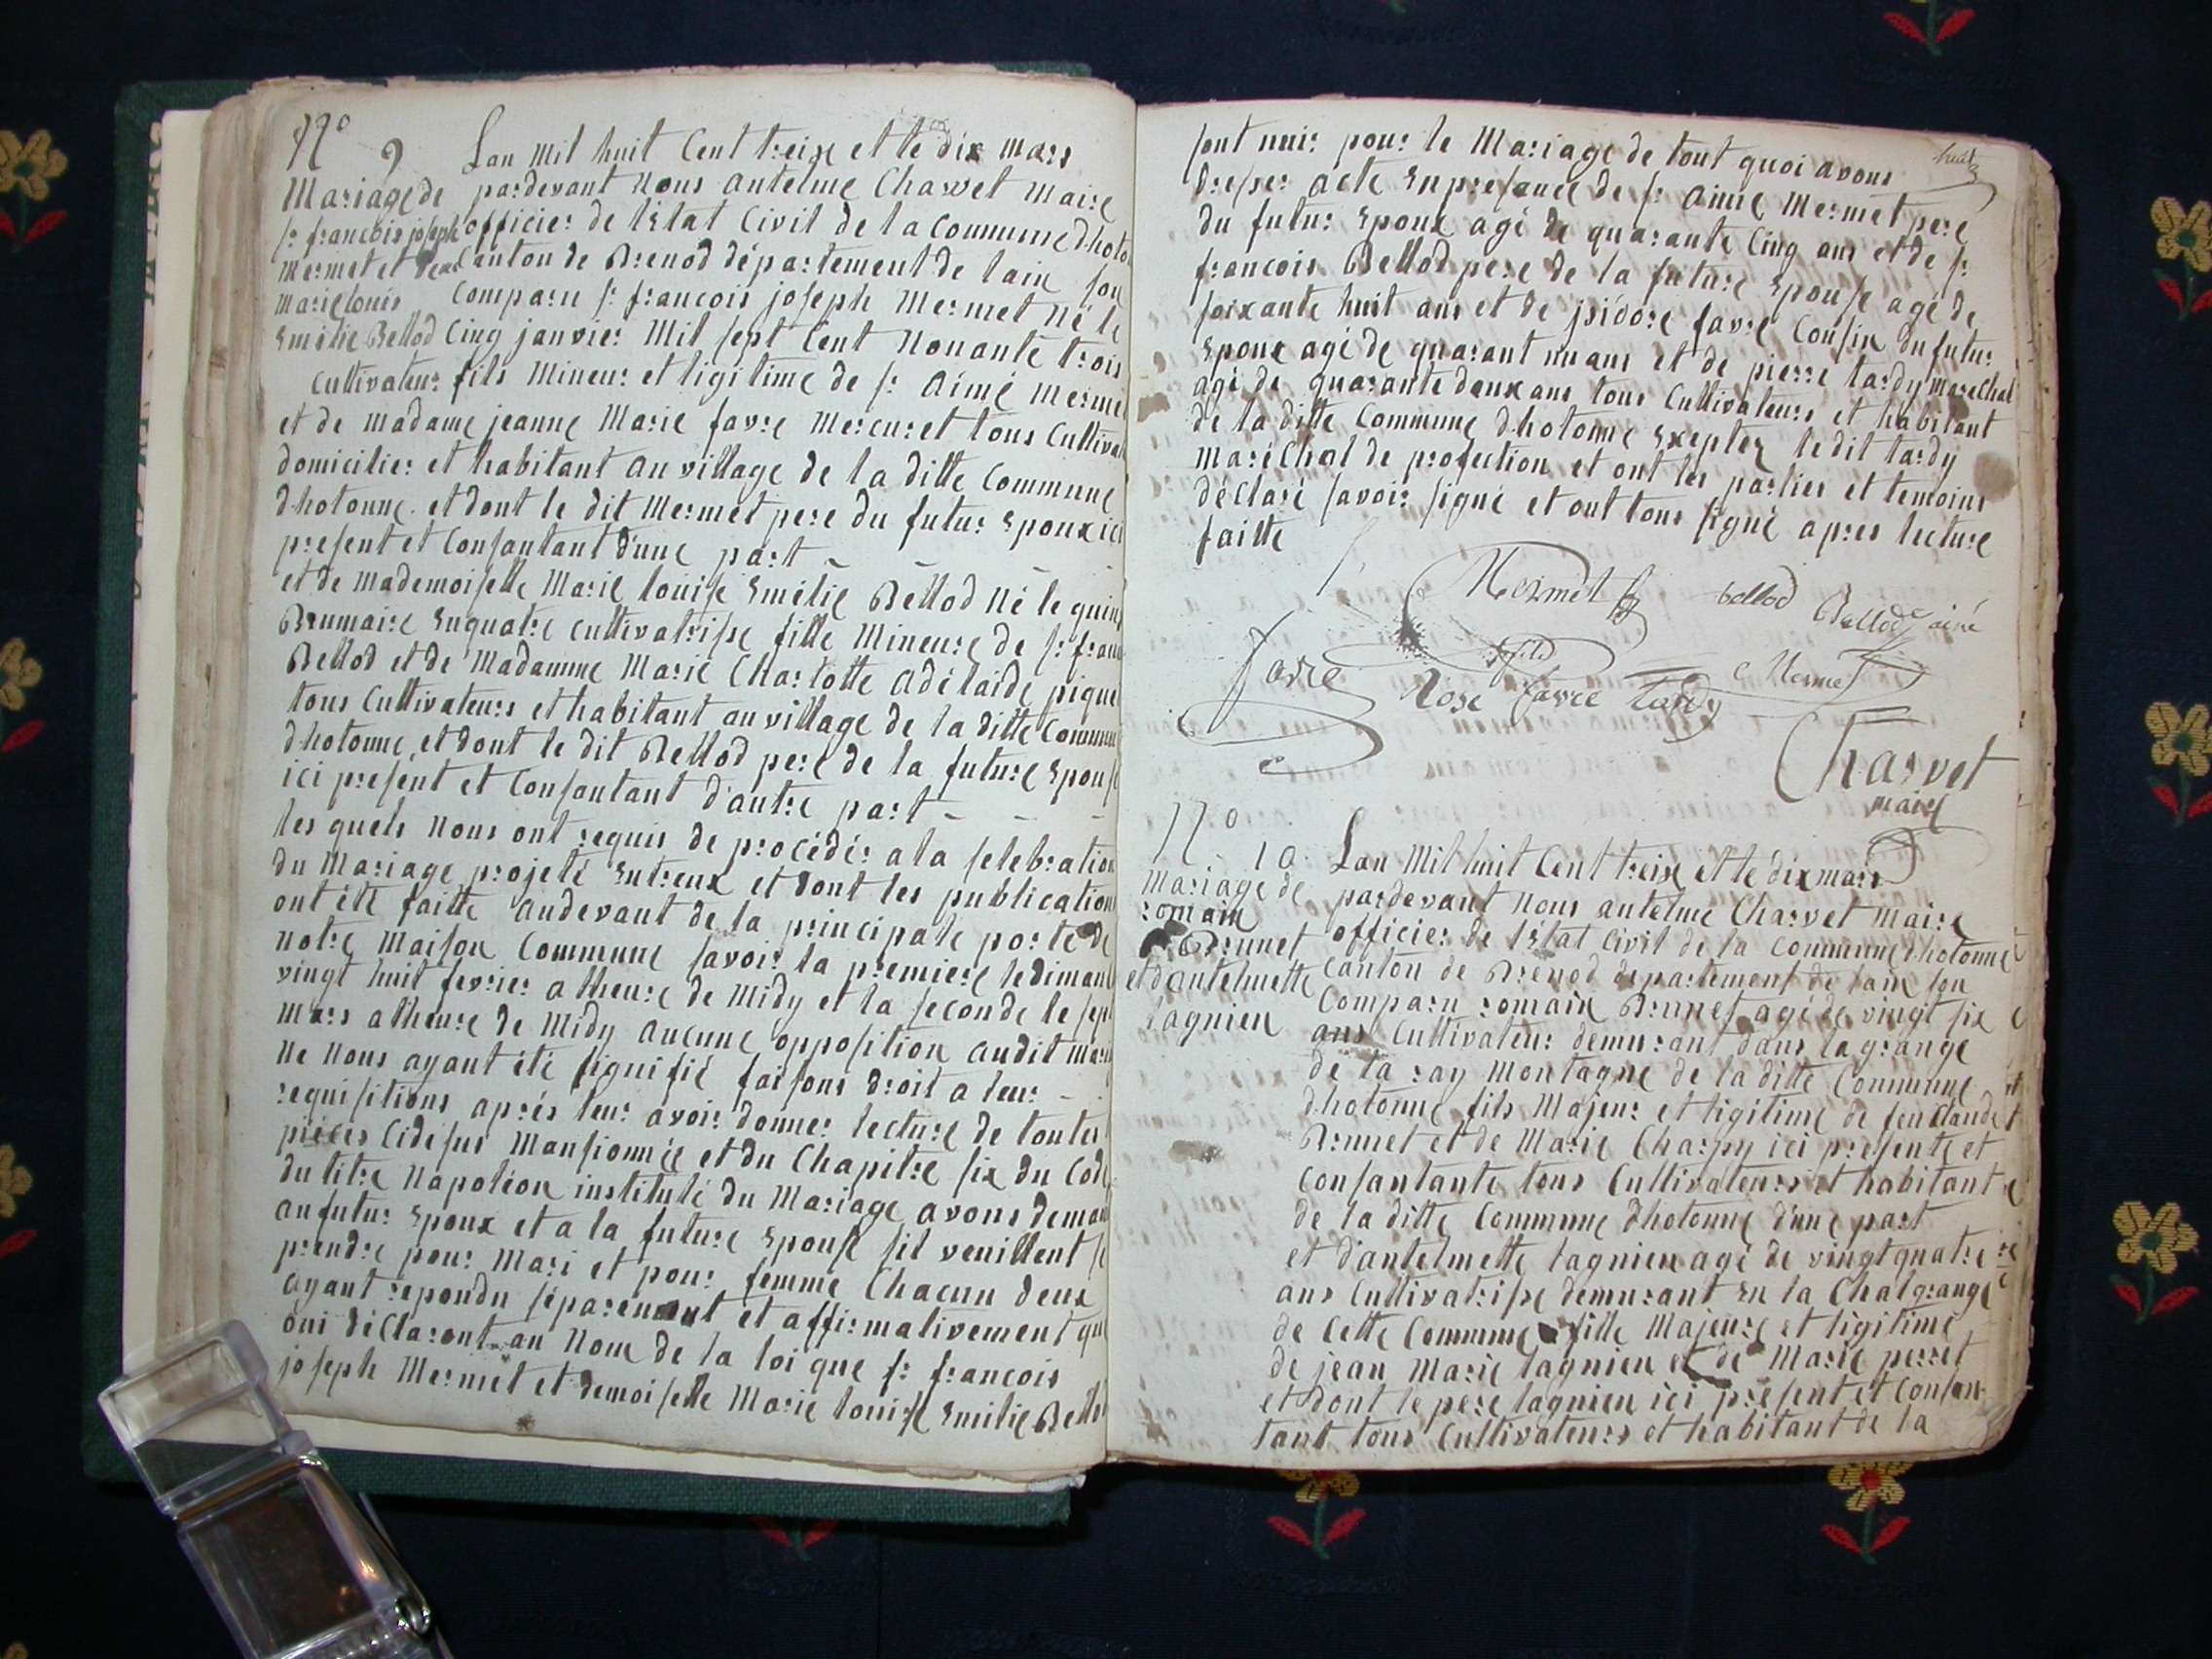 N° 9
Mariage de
sr francois joseph
Mermet et de
marie louis
Emélie Bellod
Lan Mil huit Cent treize et le dix mars
pardevant Nous antelme Charvet maire
officier de l'état Civil de la Commune dhoto
Canton de Brenod département de lain son
Comparu sr francois joseph Mermet Né le
Cinq janvier Mil sept Cent Nonante trois
Cultivateur fils Mineur et ligitime de sr Aimé Merme
et de madame jeanne Marie favre Mercuret tous Cultiva
domicilier et habitant au village de la ditte Commune
dhotonne et dont le dit Mermet pere du futur Epoux ici
present et Consantant d'une part
et de mademoiselle Marie louise Emélie Bellod Né le quin
Brumaire En quatre cultivatrisse fille Mineure de sr fran
Bellod et de Madamme Marie Charlotte adélaide pique
tous Cultivateurs et habitant au village de la ditte Commun
dhotonne et dont le dit Bellod pere de la future Epouse
ici présent et Consantant d'autre part
les quels Nous ont requis de procédér a la selebration
du Mariage projeté Entreux et dont les publication
ont été faitte audevant de la principale porte de
notre Maison Commune savoir la premiere le diman
vingt huit fevrier a lheure de Midy et la seconde le sep
mars a lheure de Midy aucune opposition audit mari
Ne Nous ayant été signifié faisons droit a leur
requisitions aprés leur avoir donner lecture de toutes
piéces Cidesus Mansionnée et du Chapitre six du Code
du titre Napoléon institulé du Mariage avons deman
au futur Epoux et a la future Epouse sil veuillent se
prendre pour Mari et pour femme Chacun deux
ayant repondu séparement et affirmativement que
oui déclaront au Nom de la loi que sr francois
joseph Mermet et demoiselle Marie louise Emilie Bello
huit
sont unir pour le Mariage de tout quoi avons
dresser acte En presance de sr Aimé Mermet pere
du futur Epoux agé de quarante Cinq ans et de sr
francois Bellod pere de la future Epouse agé de
soixante huit ans et de jsidore favre Cousin du futur
Epoux agé de quarant un ans et de pierre tardy marechal
agé de quarante deux ans tous Cultivateurs et habitant
de la ditte Commune dhotonne Exeptez le dit tardy
maréchal de profection et ont les parties et temoins
déclaré savoir signé et ont tous signé apres lecture
faitte
Mermet bellod Bellod ainé
favre fils Mermet
Rose favre tardy
Charvet
maire
N° 10
Mariage de
romain
Brunet
et dantelmette
lagnien
Lan Mil huit Cent treize et le dix mars
pardevant Nous antelme Charvet maire
officier de l'état Civil de la Commune dhotonne
Canton de Brenod département de lain son
Comparu romain Brunet agé de vingt six
ans Cultivateur demurant dans la grange
de la ray montagne de la ditte Commune
dhotonne fils Majeur et ligitime de feu Claude
Brunet et de Marie Charpy ici presente et
Consantante tous Cultivateurs et habitant
de la ditte Commune dhotonne d'une part
et d'antelmette lagnien agé de vingt quatre
ans Cultivatrisse demurant En la Chalgrange
de Cette Commune fille Majeure et ligitime
de jean Marie lagnien et de Marie perret
et dont le pere lagnien ici présent et Consan
tant tous Cultivateurs et habitant de la